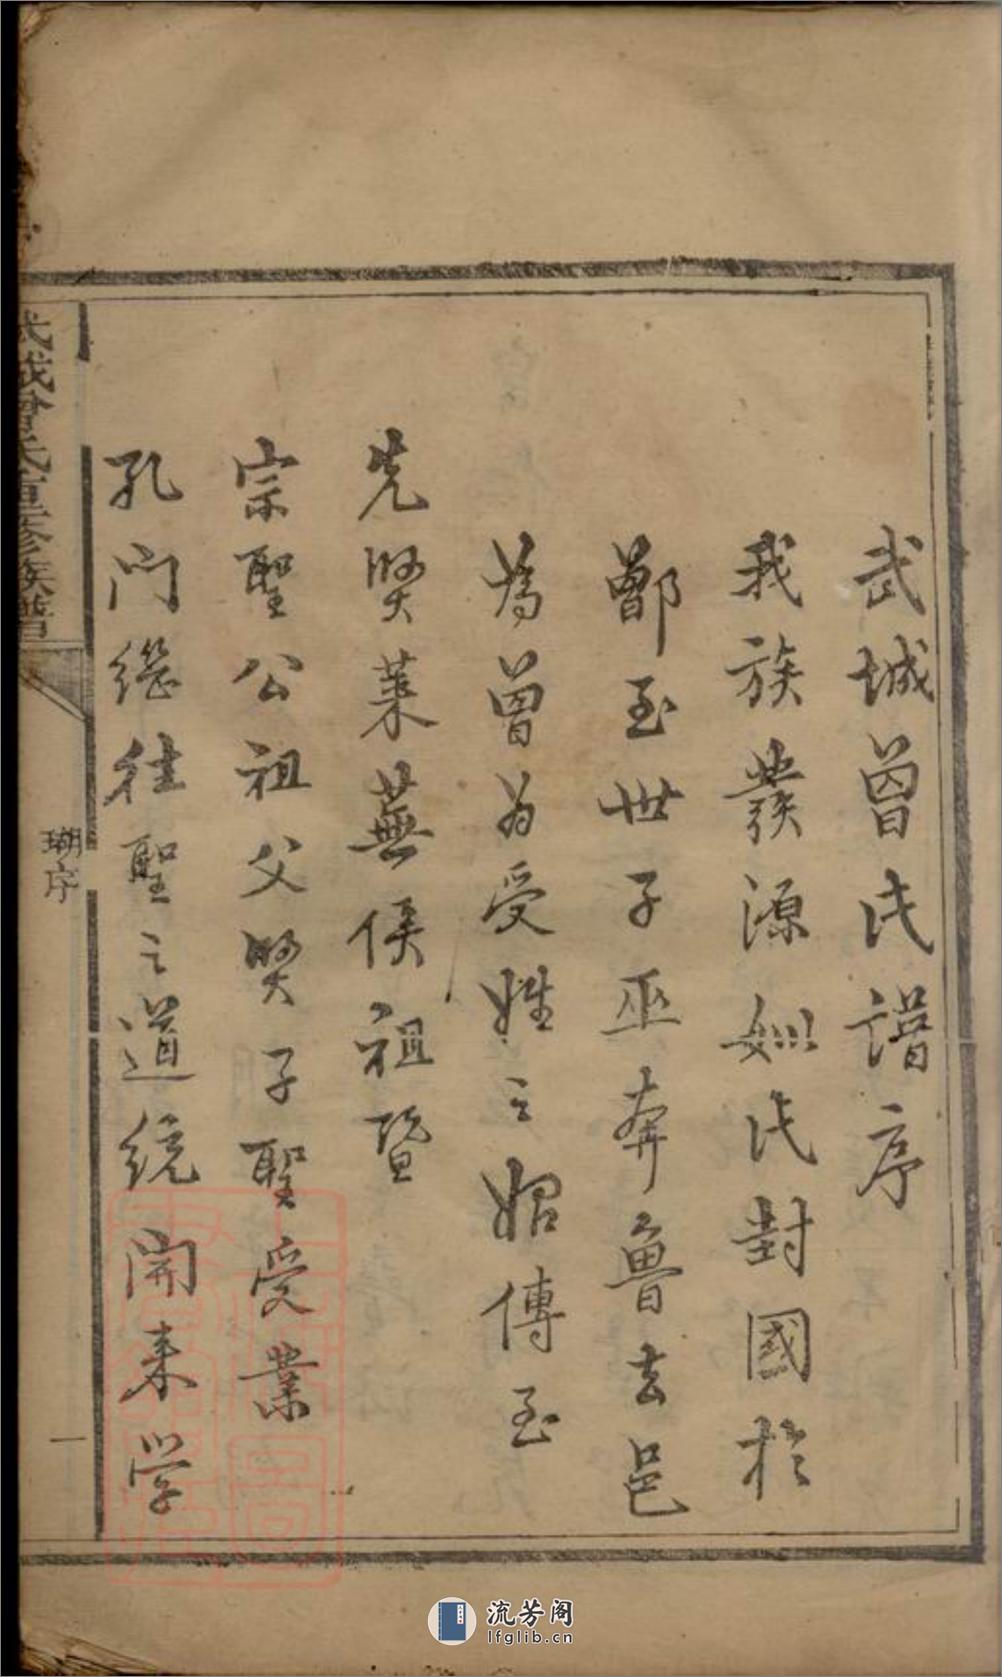 武城曾氏譜序
我族發源姒氏封國於
鄫至世子巫奔魯去邑
爲曾为受姓之始傳至
先賢萊蕪侯祖暨
宗聖公祖父賢子聖受業
孔門繼往聖之道統開来学
武城曾氏重修族譜
瑚序
一
流芳阁
lfglib.cn